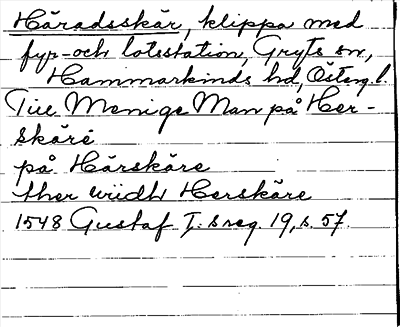 Häradsskär, klippa med
fyr- och lotsstation, Gryts sn,
Hammarkinds hd, Österg. l.
Till Menige Man på Her-
skäre
på Härskäre
ther widh Herskäre
1548 Gustaf I:s reg. 19, s. 57.